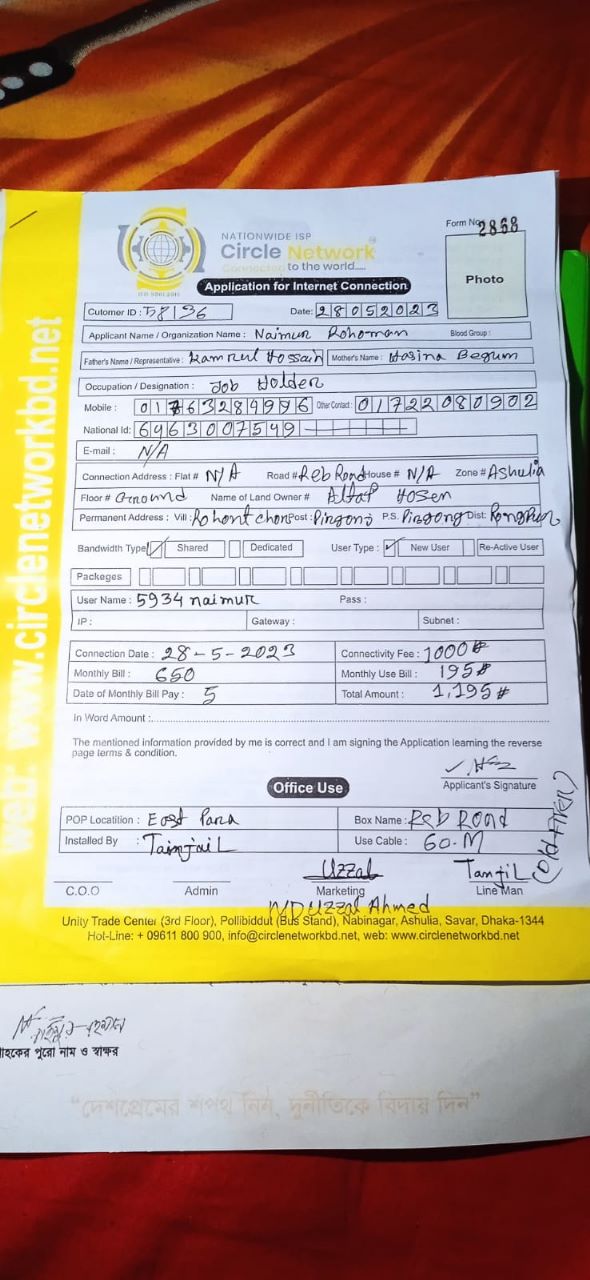 web: www.circlenetworkbd.net
NATIONWIDE ISP
Circle Network
Connected to the world.....
ISO 9001:2015
Form No 2868
Photo
Application for Internet Connection
Cutomer ID : Date: 28052023
Applicant Name / Organization Name : Naimur Rohoman Blood Group :
Father's Name / Representative : Kamrul Hossain Mother's Name : Hasina Begum
Occupation / Designation : Job Holder
Mobile : 01763284996 Other Contact : 01722080902
National Id: 6463007549
E-mail : N/A
Connection Address : Flat # N/A Road # Reb Road House # N/A Zone # Ashulia
Floor # Ground Name of Land Owner # Altaf Hosen
Permanent Address : Vill : Post : P.S. Dist:
Bandwidth Type Shared Dedicated User Type : New User Re-Active User
Packeges
User Name : 5934 naimur Pass :
IP : Gateway : Subnet :
Connection Date : 28-5-2023 Connectivity Fee : 1000
Monthly Bill : 650 Monthly Use Bill : 195
Date of Monthly Bill Pay : 5 Total Amount : 1,195
In Word Amount :
The mentioned information provided by me is correct and I am signing the Application learning the reverse
page terms & condition.
Applicant's Signature
Office Use
POP Locatition : East Para Box Name : Reb Road
Installed By : Use Cable : 60-M
Uzzal TanjiL
C.O.O Admin Marketing Line Man
MD Uzzal Ahmed
Unity Trade Center (3rd Floor), Pollibiddut (Bus Stand), Nabinagar, Ashulia, Savar, Dhaka-1344
Hot-Line: + 09611 800 900, info@circlenetworkbd.net, web: www.circlenetworkbd.net
গ্রাহকের পুরো নাম ও স্বাক্ষর
“দেশপ্রেমের শপথ নিন, দুর্নীতিকে বিদায় দিন”